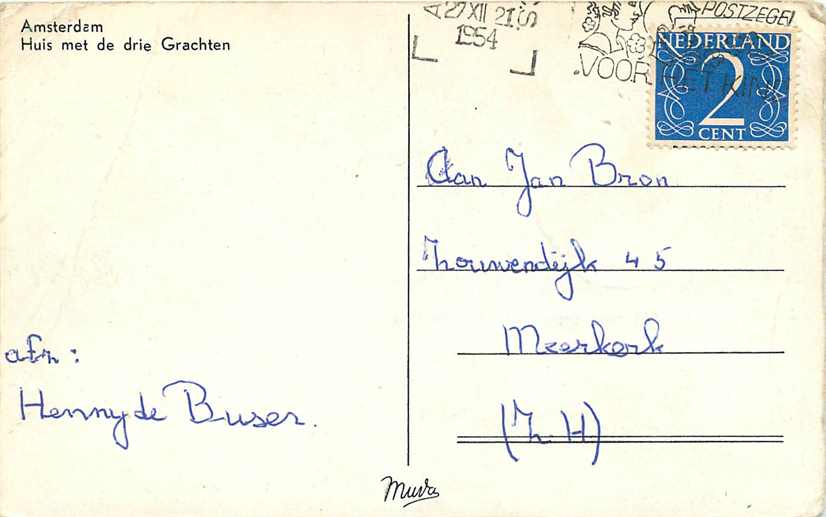 Amsterdam
Huis met de drie Grachten
27 XII 21
1954
POSTZEGEL
VOOR HET KIND
NEDERLAND
2
CENT
Aan Jan Bron
Zouwendijk 45
Meerkerk
(Z H)
afz:
Henny de Buser.
Muva